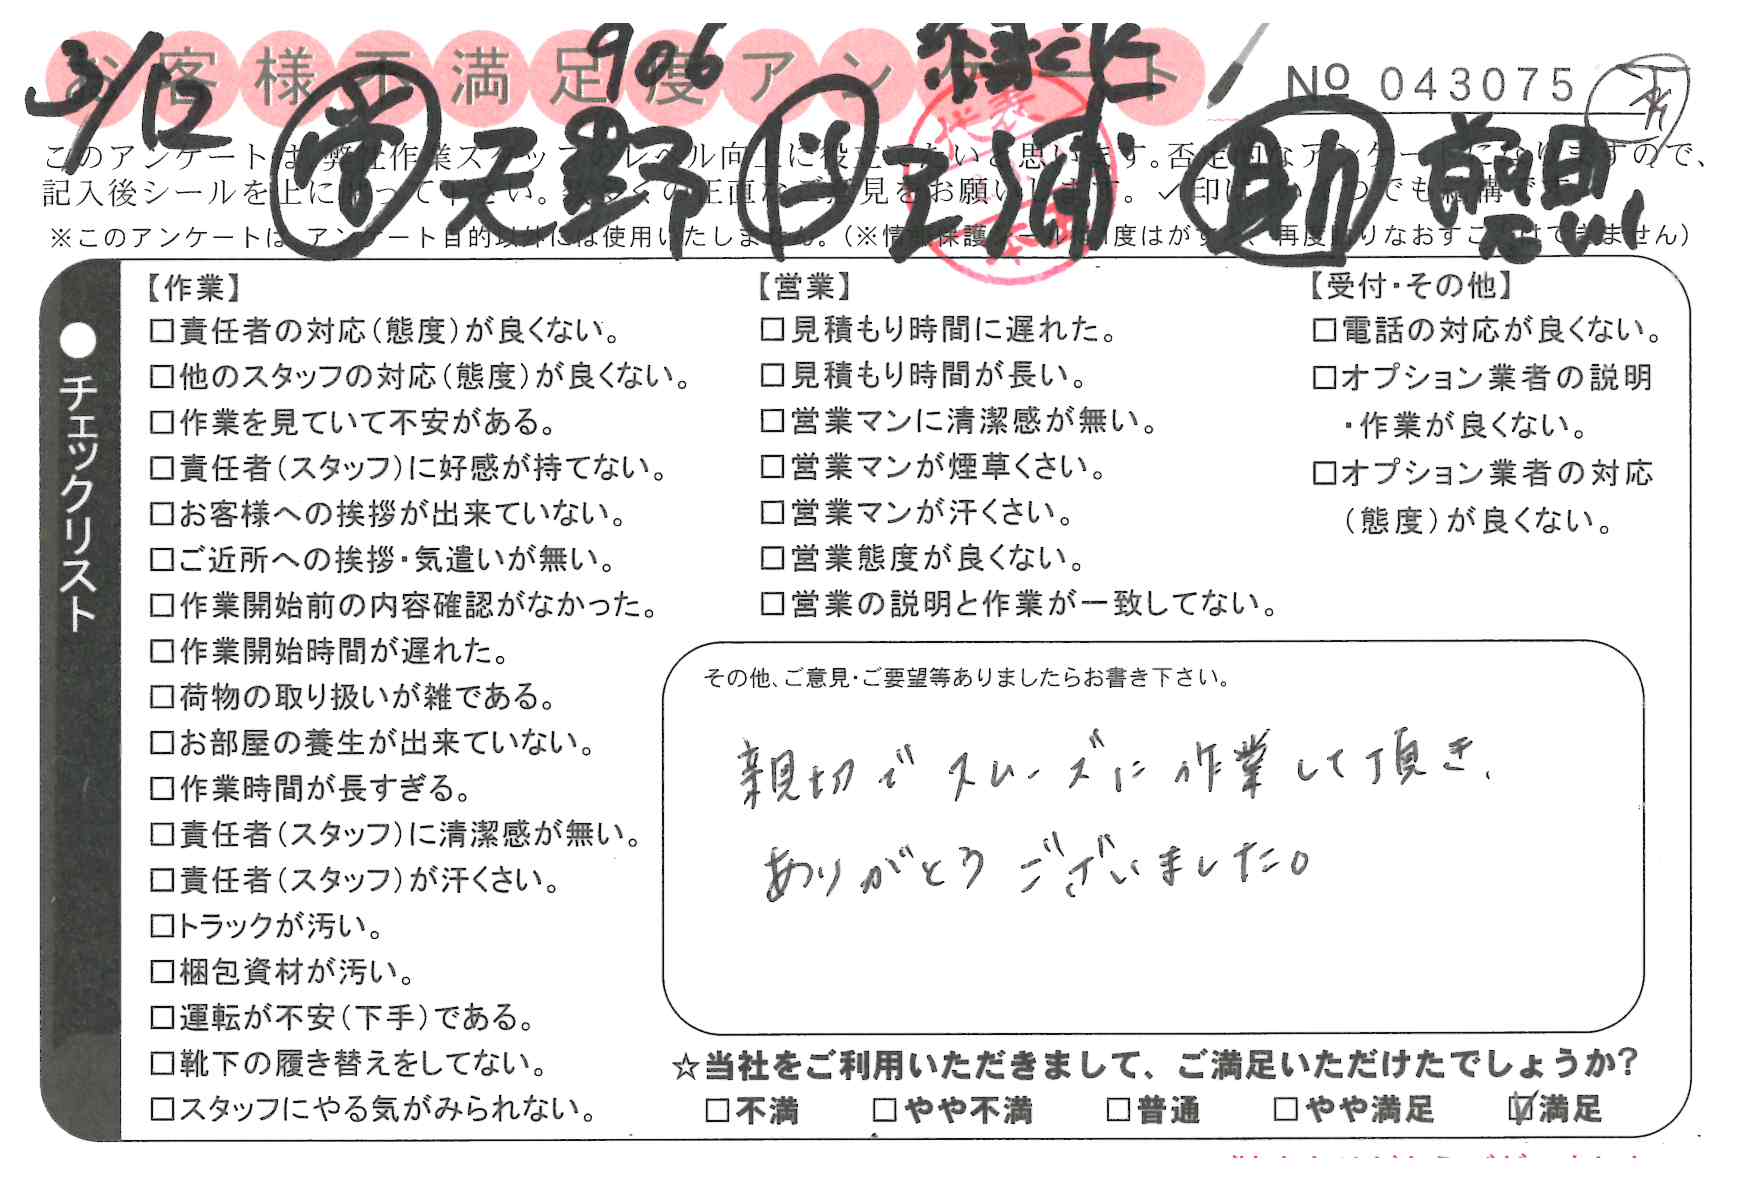 お客様不満足度アンケート
906
3/12
No 043075
天野
三浦
助
このアンケートは弊社作業スタッフのレベル向上に役立てたいと思います。否定的なアンケートになりますので、
記入後シールを上に貼って下さい。 正直なご意見をお願いします。✓印は いくつでも結構です
※このアンケートは、アンケート目的以外には使用いたしません。(※情報保護シールは1度はがすと、再度貼りなおすことはできません)
代表
●チェックリスト
【作業】
□責任者の対応(態度)が良くない。
□他のスタッフの対応(態度)が良くない。
□作業を見ていて不安がある。
□責任者(スタッフ)に好感が持てない。
□お客様への挨拶が出来ていない。
□ご近所への挨拶・気遣いが無い。
□作業開始前の内容確認がなかった。
□作業開始時間が遅れた。
□荷物の取り扱いが雑である。
□お部屋の養生が出来ていない。
□作業時間が長すぎる。
□責任者(スタッフ)に清潔感が無い。
□責任者(スタッフ)が汗くさい。
□トラックが汚い。
□梱包資材が汚い。
□運転が不安(下手)である。
□靴下の履き替えをしてない。
□スタッフにやる気がみられない。
【営業】
□見積もり時間に遅れた。
□見積もり時間が長い。
□営業マンに清潔感が無い。
□営業マンが煙草くさい。
□営業マンが汗くさい。
□営業態度が良くない。
□営業の説明と作業が一致してない。
【受付・その他】
□電話の対応が良くない。
□オプション業者の説明
・作業が良くない。
□オプション業者の対応
(態度)が良くない。
その他、ご意見・ご要望等ありましたらお書き下さい。
親切でスムーズに作業して頂き、
ありがとうございました。
☆当社をご利用いただきまして、ご満足いただけたでしょうか?
□不満 □やや不満 □普通 □やや満足 ☑満足